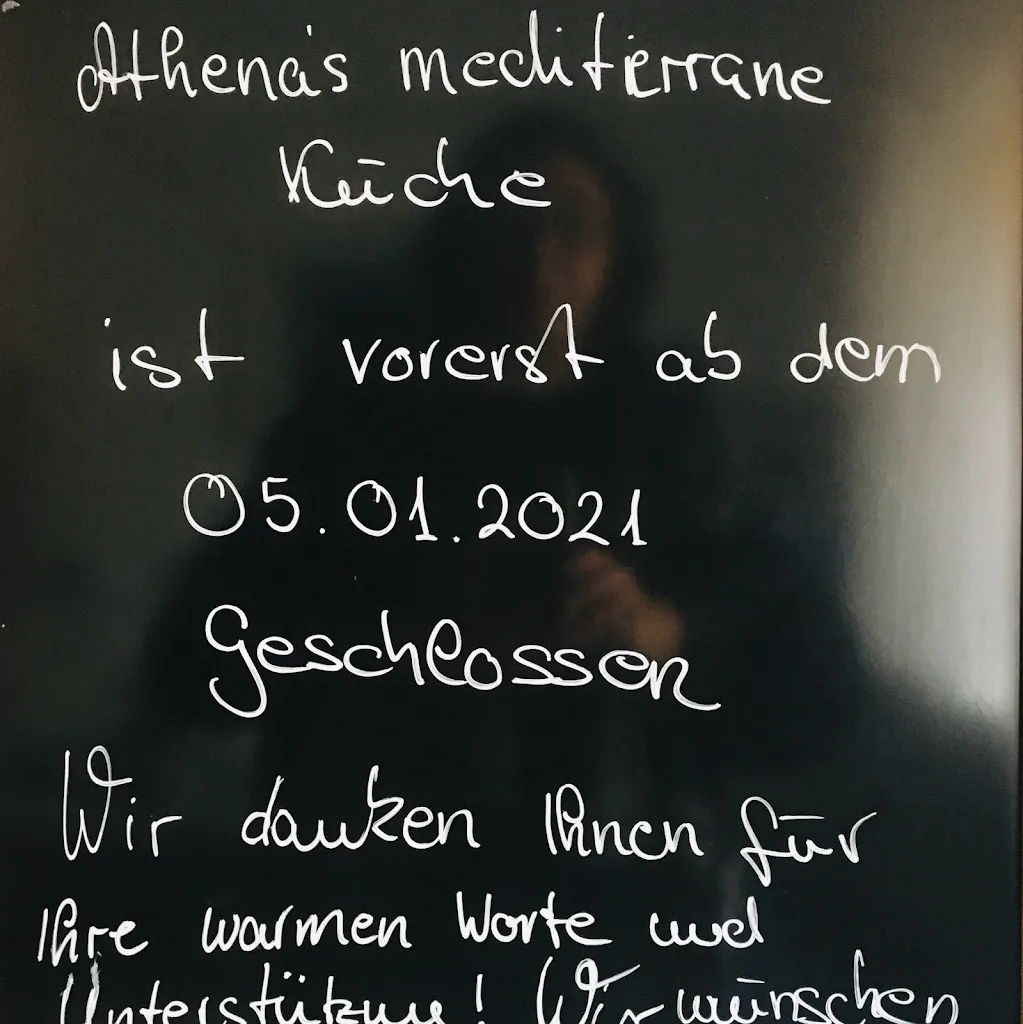 Athena's mediterrane
Küche
ist vorerst ab dem
05.01.2021
Geschlossen
Wir danken Ihnen für
Ihre warmen Worte und
Unterstützung! Wir wünschen